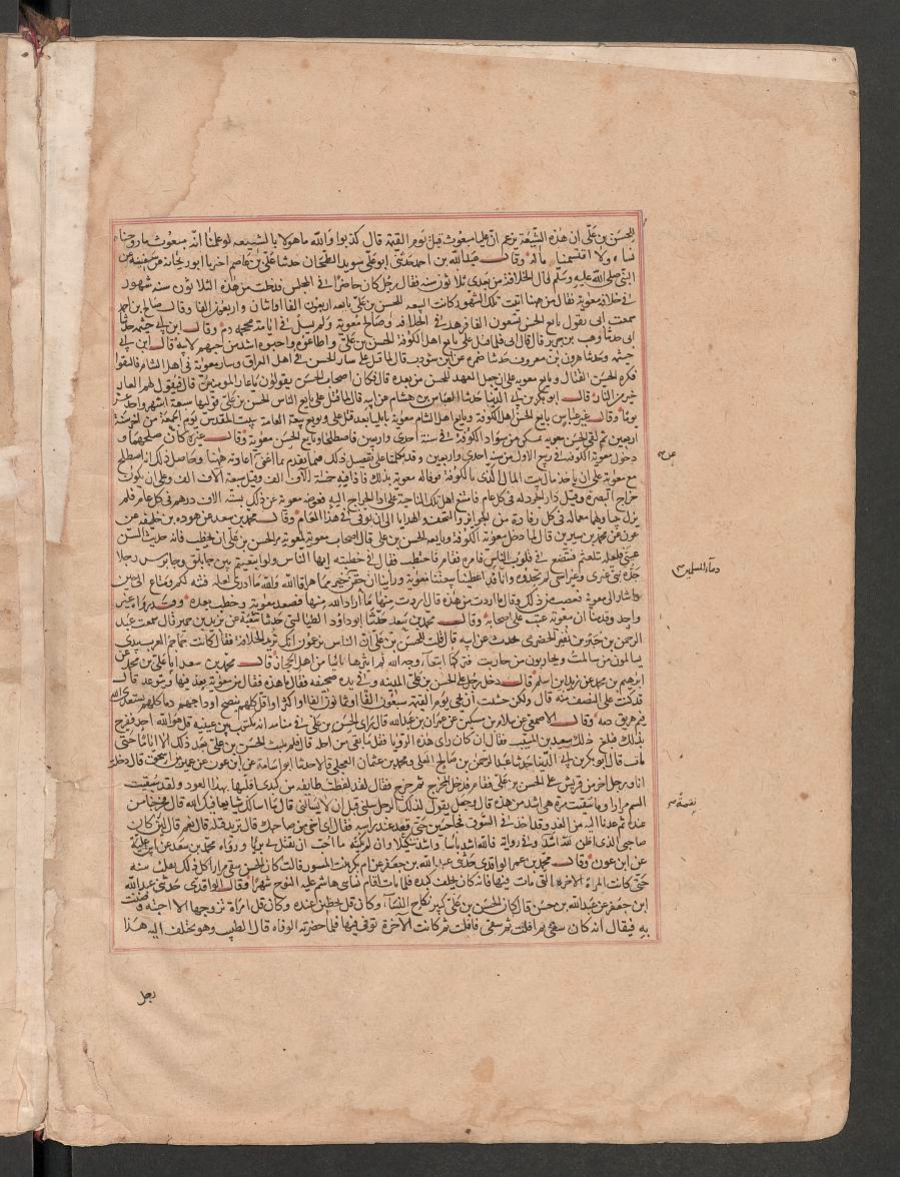 للحسن بن علي ان هذه الشيعة تزعم ان عليا مبعوث قبل يوم القيمة قال كذبوا والله ما هولا بالشيعه لو علمنا انه مبعوث ما زوجنا
نساه ولا اقتسمنا ماله وقال عبدالله بن احمد حدثني ابو علي سويد الطحان حدثنا علي بن عاصم اخبرنا ابو ريحانه عن سفينة عن
النبي صلى الله عليه وسلم قال الخلافة من بعدي ثلاثون سنه فقال رجل كان حاضرا في المجلس فدخلت من هذه الثلاثون سنه شهور
في خلافة معوية فقال من هنا اتيت تلك الشهور كانت البيعه للحسن بن علي بايعه اربعون الفا او اثنان واربعون الفا وقال صالح بن احمد
سمعت ابي يقول بايع الحسن تسعون الفا فزهد في الخلافه وصالح معوية ولم يسيل في ايامه محجمة دم وقال ابن ابي خيثمه حدثنا
ابي حدثنا وهب بن جرير قال قال ابي فلما قتل علي بايع اهل الكوفة الحسن بن علي واطاعوه واحبوه اشد من حبهم لابيه قال ابن ابي
خيثمه وحدثنا هرون بن معروف حدثنا ضمره عن ابن شوذب قال لما قتل علي سار الحسن في اهل العراق وسار معوية في اهل الشام فالتقوا
فكره الحسن القتال وبايع معوية على ان جعل العهد للحسن من بعده قال فكان اصحاب الحسن يقولون يا عار المومنين قال فيقول لهم العار
خير من النار قال ابو بكر بن ابي الدنيا حدثنا العباس بن هشام عن ابيه قال لما قتل علي بايع الناس الحسن بن علي فوليها سبعة اشهر واحد عشر
يوما وقال غير عباس بايع الحسن اهل الكوفة وبايع اهل الشام معوية بايليا بعد قتل علي وبويع بيعة العامة ببيت المقدس يوم الجمعة من اخر سنة
اربعين ثم لقي الحسن معوية بمسكن من سواد الكوفة في سنة احدى واربعين فاصطلحا وبايع الحسن معوية وقال غيره كان صلحهما و
دخول معوية الكوفه في ربيع الاول من سنه احدى واربعين وقد تكلمنا على تفصيل ذلك فيما تقدم بما اغنى عن اعادته ههنا وحاصل ذلك انه اصطلح
مع معوية على ان ياخذ ما في بيت المال الذي بالكوفة فوفا له معوية بذلك فاذا فيه خمسة الاف الف وقيل سبعة الاف الف وعلى ان يكون
خراج البصرة وقيل دار ابجرد له في كل عام فامتنع اهل تلك الناحية عن ادا الخراج اليه فعوضه معوية عن ذلك بسته الاف الف درهم في كل عام فلم
يزل يتناولهما مع ما له في كل وفادة من الجوائز والتحف والهدايا الى ان توفي في هذا العام وقال محمد بن سعد عن هوده بن خليفه عن
عون عن محمد بن سيرين قال لما دخل معوية الكوفة وبايعه الحسن بن علي قال اصحاب معوية لمعوية مر الحسن بن علي ان يخطب فانه حديث السن
عيي فلعله يتلعثم فيتضع في قلوب الناس فامره فقام فاختطب فقال في خطبته ايها الناس والله لو ابتغيتم بين جابلق وجابرس رجلا
جده نبي غيري وغير اخي لم تجدوه وانا قد اعطينا بيعتنا معوية وراينا ان حقن خير مما اهراقها الله ولقد ما ادري لعله فتنه لكم ومتاع الى حين
واشار الى معوية فغضب من ذلك وقال ما اردت من هذه قال اردت منها ما اراد الله منها فصعد معوية وخطب بعده وقد رواه غير
واحد وقدمنا ان معوية عتب على اصحابه وقال محمد بن سعد حدثنا ابو داود الطيالسي حدثنا شعبة عن يزيد بن خمير قال سمعت عبد
الرحمن بن جبير بن نفير الحضرمي يحدث عن ابيه قال قلت للحسن بن علي ان الناس يزعمون انك تريد الخلافة فقال كانت جماجم العرب بيدي
يسالمون من سالمت ويحاربون من حاربت فتركتها ابتغاء وجه الله ثم ابتزها باتياس اهل الحجاز قال محمد بن سعد انا علي بن محمد عن
ابرهيم بن محمد عن زيد بن اسلم قال دخل رجل على الحسن بن علي المدينه وفي يده صحيفه فقال ما هذه فقال من معوية يعد فيها ويتوعد قال
قد كنت على النصف منه قال ولكن خشيت ان يجي يوم القيمه سبعون الفا او ثمانون الفا او اكثر او اقل كلهم تنضح اوداجهم دما كلهم يستعدي الله
فيم هريق دمه وقال الاصمعي عن سلام بن مسكين عن عمران بن عبدالله قال راى الحسن بن علي في منامه انه مكتوب بين عينيه قل هو الله احد ففرح
بذلك فبلغ ذلك سعيد بن المسيب فقال ان كان راى هذه الرويا فقل ما بقي من اجله قال فلم يلبث الحسن بن علي بعد ذلك الا اياما حتى
مات قال ابو بكر بن ابي الدنيا حدثنا عبد الرحمن بن صالح العتكي ومحمد بن عثمان العجلي قالا حدثنا ابو اسامة عن ابن عون عن عمير بن اسحق قال دخلت
انا ورجل اخر من قريش على الحسن بن علي فقام فدخل المخرج ثم خرج فقال لقد لفظت طايفه من كبدي اقلبها بهذا العود ولقد سقيت
السم مرارا وما سقيت مرة هي اشد من هذه قال وجعل يقول لذلك الرجل سلني قبل ان لا تسالني قال ما اسالك شيا يعافيك الله قال فخرجنا من
عنده ثم عدنا اليه من الغد وقد اخذ في السوق فجا حسين حتى قعد عند راسه فقال اي اخي من صاحبك قال تريد قتله قال نعم قال لئن كان
صاحبي الذي اظن لله اشد وفي رواية فالله اشد باسا واشد تنكيلا وان لم يكنه ما احب ان تقتل بي بريا ورواه محمد بن سعد عن ابن علية
عن ابن عون وقال محمد بن عمر الواقدي حدثني عبدالله بن جعفر عن ام بكر بنت المسور قالت كان الحسن سقي مرارا كل ذلك يفلت منه
حتى كانت المرة الاخرة التي مات فيها فانه كان يختلف كبده فلما مات اقام نساء بني هاشم عليه النوح شهرا وقال الواقدي حدثني عبدالله
ابن جعفر عن عبدالله بن حسن قال كان الحسن بن علي كثير نكاح النساء وكان قل ما يحظين عنده وكان قل امراة تزوجها الا احبته وضنت
به فيقال انه كان سقي ثم افلت ثم سقي فافلت ثم كانت الآخرة توفي فيها فلما حضرته الوفاه قال الطبيب وهو يختلف اليه هذا
دماء المسلمين
رجل